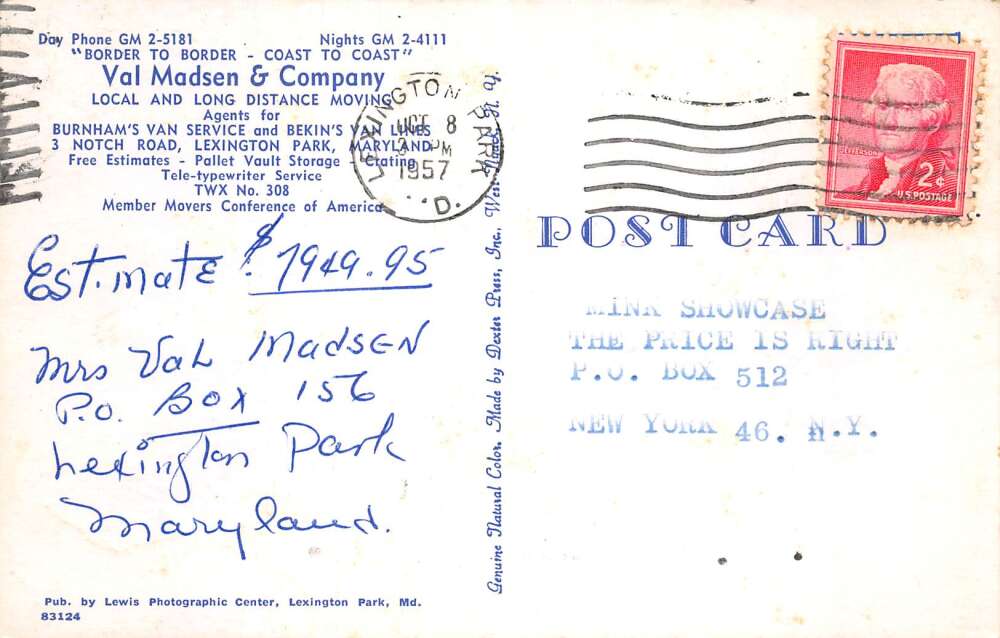 Day Phone GM 2-5181 Nights GM 2-4111
"BORDER TO BORDER - COAST TO COAST"
Val Madsen & Company
LOCAL AND LONG DISTANCE MOVING
Agents for
BURNHAM'S VAN SERVICE and BEKIN'S VAN LINES
3 NOTCH ROAD, LEXINGTON PARK, MARYLAND
Free Estimates - Pallet Vault Storage - Crating
Tele-typewriter Service
TWX No. 308
Member Movers Conference of America
LEXINGTON PARK
OCT 8
PM
1957
D.
Estimate $ 1949.95
Mrs Val Madsen
P.O. Box 156
Lexington Park
Maryland.
Pub. by Lewis Photographic Center, Lexington Park, Md.
83124
Genuine Natural Color. Made by Dexter Press, Inc., West Nyack, N. Y.
JEFFERSON
2¢
U.S. POSTAGE
POST CARD
MINK SHOWCASE
THE PRICE IS RIGHT
P.O. BOX 512
NEW YORK 46. N.Y.